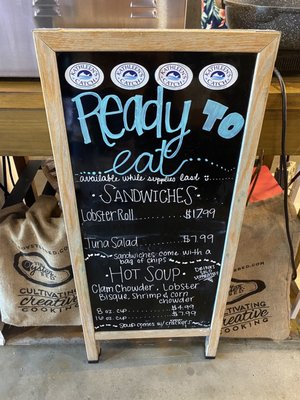 KATHLEEN'S CATCH
KATHLEEN'S CATCH
KATHLEEN'S CATCH
KATHLEEN'S CATCH
Ready to
eat
available while supplies last
SANDWICHES
Lobster Roll ........... $17.99
Tuna Salad ........... $7.99
sandwiches come with a
bag of chips
HOT SOUP
Clam Chowder, Lobster
Bisque, Shrimp & corn
chowder
8 oz. cup ........... $4.99
16 oz. cup ........... $7.99
Soup comes w/ crackers
CULTIVATING
creative
COOKING
CULTIVATING
creative
COOKING